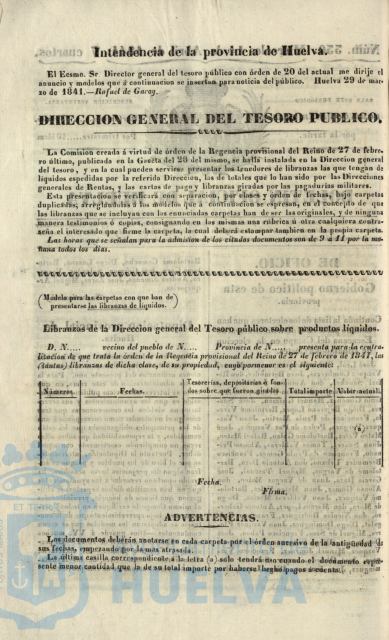 Intendencia de la provincia de Huelva.
El Ecsmo. Sr Director general del tesoro público con órden de 20 del actual me dirije el
anuncio y modelos que á continuacion se insertan para noticia del público. Huelva 29 de mar-
zo de 1841.—Rafael de Garay.
DIRECCION GENERAL DEL TESORO PUBLICO.
La Comision creada á virtud de órden de la Regencia provisional del Reino de 27 de febre-
ro último, publicada en la Gaceta del 28 del mismo, se halla instalada en la Direccion general
del tesoro, y en la cual pueden servirse presentar los tenedores de libranzas las que tengan de
líquidos espedidas por la referida Direccion, las de totales que lo han sido por las Direcciones
generales de Rentas, y las cartas de pago y libranzas giradas por las pagadurías militares.
Esta presentacion se verificará con separacion, por clases y órden de fechas, bajo carpetas
duplicadas, arregladas á los modelos que á continuacion se espresan, en el concepto de que
las libranzas que se incluyan en las enunciadas carpetas han de ser las originales, y de ninguna
manera testimonios ó copias, consignando en las mismas una rúbrica ú otra cualquiera contra-
seña el interesado que firme la carpeta, la cual deberá estampar tambien en la propia carpeta.
Las horas que se señalan para la admision de los citados documentos son de 9 á 11 por la ma-
ñana todos los dias.
(Modelo para las carpetas con que han de
presentarse las libranzas de líquidos.)
Libranzas de la Direccion general del Tesoro público sobre productos líquidos.
D. N..... vecino del pueblo de N..... Provincia de N..... presenta para la centra-
lizacion de que trata la órden de la Regencia provisional del Reino de 27 de febrero de 1841, las
(tantas) libranzas de dicha clase, de su propiedad, cuyo pormenor es el siguiente:
Números. Fechas. Tesorerías, depositarías ó fon-
dos sobre que fueron giradas Total importe Valor actual.
(a)
Fecha.
Firma.
ADVERTENCIAS.
Los documentos deberán anotarse en cada carpeta por el órden sucesivo de la antigüedad de
sus fechas, empezando por la mas atrasada.
La última casilla correspondiente á la letra (a) solo tendrá uso cuando el documento repre-
sente menor cantidad que la de su total importe por haberse hecho pagos á cuenta.
HUELVA